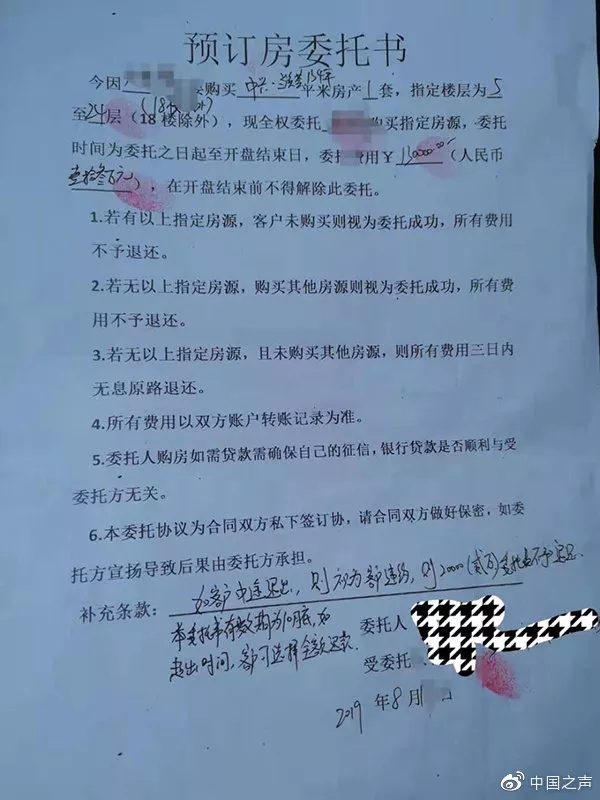 预订房委托书
今因 购买 中兴· 139平 平米房产 1 套，指定楼层为 5
至 24 层（18楼除外），现全权委托 购买指定房源，委托
时间为委托之日起至开盘结束日，委 费用￥ 130000.00（人民币
壹拾叁万元），在开盘结束前不得解除此委托。
1.若有以上指定房源，客户未购买则视为委托成功，所有费用
不予退还。
2.若无以上指定房源，购买其他房源则视为委托成功，所有费
用不予退还。
3.若无以上指定房源，且未购买其他房源，则所有费用三日内
无息原路退还。
4.所有费用以双方账户转账记录为准。
5.委托人购房如需贷款需确保自己的征信，银行贷款是否顺利与受
委托方无关。
6.本委托协议为合同双方私下签订协，请合同双方做好保密，如委
托方宣扬导致后果由委托方承担。
补充条款：如客户中途退出，则视为客户违约，则20000（贰万） 不予退还
本委托书有效期为10月底，如
超出时间，客户可选择全款退款.
委托人
受委托
2019 年 8 月 1
中国之声